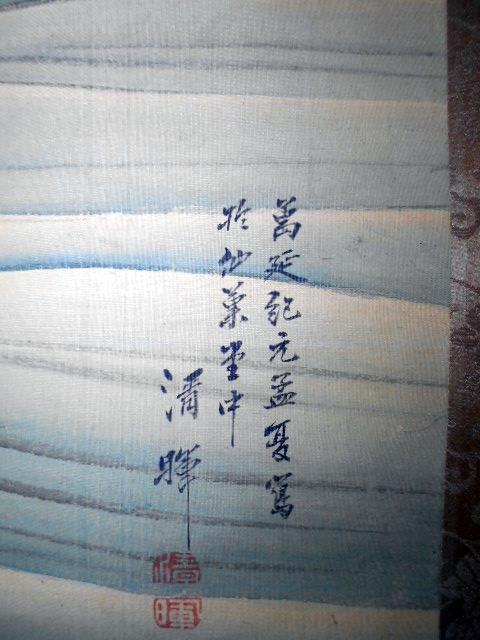 萬延紀元孟夏寫
於仙菓堂中
清暉
清
暉